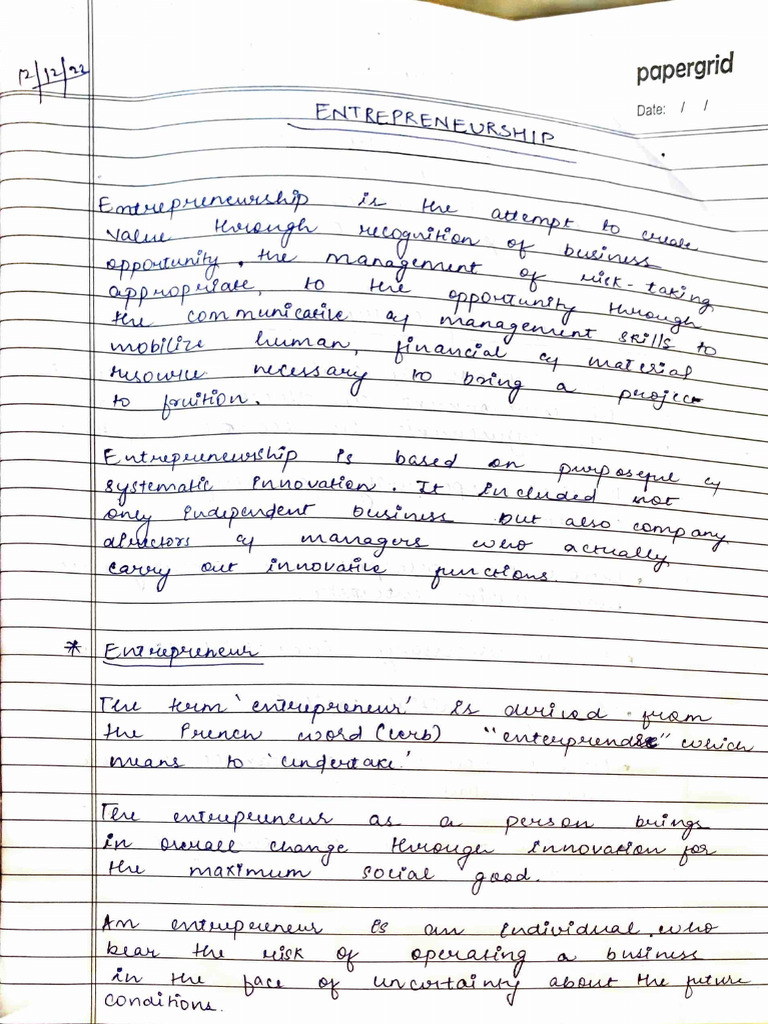 12/12/22
papergrid
Date: / /
ENTREPRENEURSHIP
Entrepreneurship is the attempt to create
value through recognition of business
opportunity, the management of risk-taking
appropriate, to the opportunity through
the communicative & management skills to
mobilize human, financial & material
resource necessary to bring a project
to fruition.
Entrepreneurship is based on purposeful &
systematic innovation. It included not
only independent business but also company
directors & managers who actually
carry out innovative functions.
* Entrepreneur
The term 'entrepreneur' is derived from
the French word (verb) "enterprendre" which
means to 'undertake'
The entrepreneur as a person brings
in overall change through innovation for
the maximum social good.
An entrepreneur is an individual who
bear the risk of operating a business
in the face of uncertainty about the future
conditions.